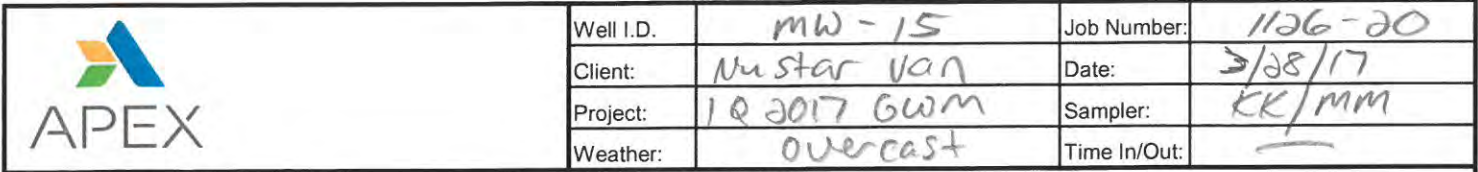 APEX
Well I.D. MW-15 Job Number: 1126-20
Client: Nustar Van Date: 3/28/17
Project: 1Q 2017 GWM Sampler: KK/MM
Weather: Overcast Time In/Out: —